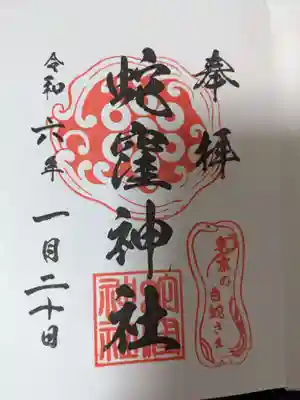 奉拝
蛇窪神社
令和六年
一月二十日
東京の
白蛇さま